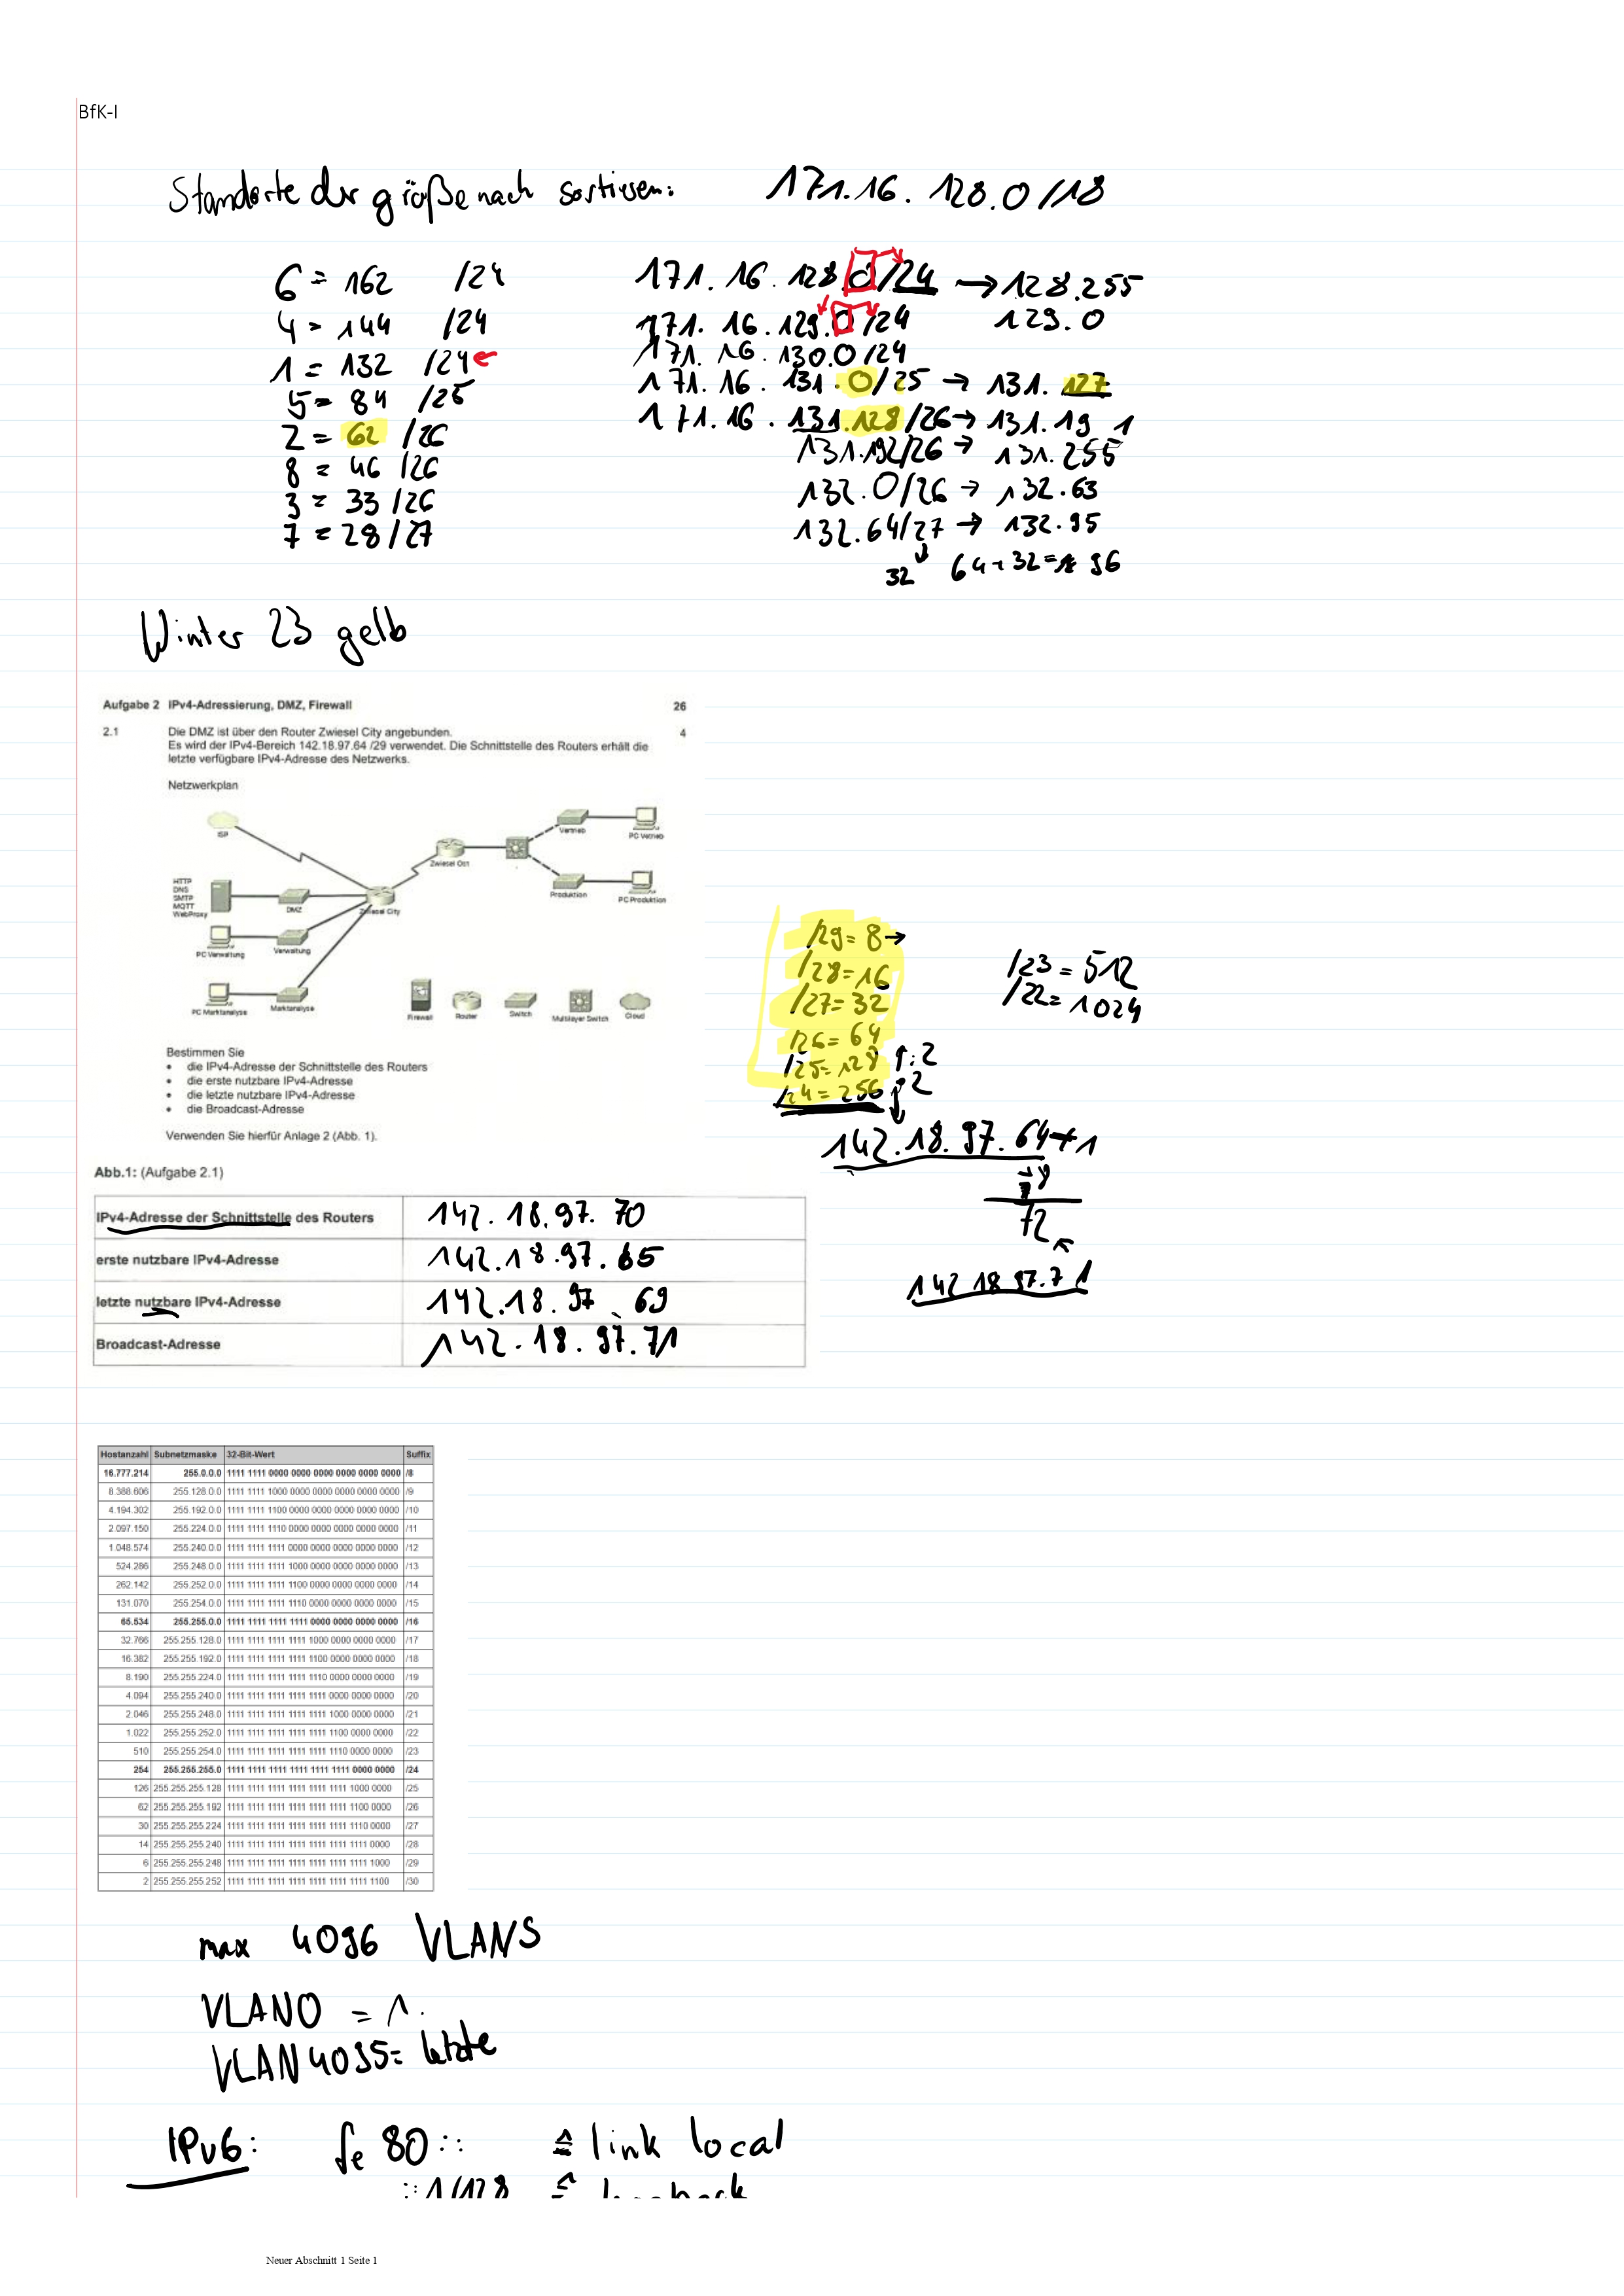 BfK-I
Standorte der größe nach sortieren: 171.16.128.0/18
6 = 162 /24 171.16.128.0/24 → 128.255
4 = 144 /24 171.16.129.0/24 129.0
1 = 132 /24 ← 171.16.130.0/24
5 = 84 /25 171.16.131.0/25 → 131.127
2 = 62 /26 171.16.131.128/26 → 131.19 1
8 = 46 /26 131.192/26 → 131.255
3 = 33 /26 132.0/26 → 132.63
7 = 28 /27 132.64/27 → 132.95
32 64+32= 96
Winter 23 gelb
Aufgabe 2 IPv4-Adressierung, DMZ, Firewall 26
2.1 Die DMZ ist über den Router Zwiesel City angebunden. 4
Es wird der IPv4-Bereich 142.18.97.64 /29 verwendet. Die Schnittstelle des Routers erhält die
letzte verfügbare IPv4-Adresse des Netzwerks.
Netzwerkplan
ISP
Vertrieb
PC Vertrieb
Zwiesel Ost
HTTP
DNS
SMTP
MQTT
WebProxy
DMZ
Zwiesel City
Produktion
PC Produktion
PC Verwaltung
Verwaltung
PC Marktanalyse
Marktanalyse
Firewall
Router
Switch
Multilayer Switch
Cloud
/29 = 8 →
/28 = 16
/27 = 32
/26 = 64
/25 = 128 ↑:2
/24 = 256 ↓2
/23 = 512
/22 = 1024
Bestimmen Sie
• die IPv4-Adresse der Schnittstelle des Routers
• die erste nutzbare IPv4-Adresse
• die letzte nutzbare IPv4-Adresse
• die Broadcast-Adresse
Verwenden Sie hierfür Anlage 2 (Abb. 1).
142.18.97.64+1
8
72
142 18 97.71
Abb.1: (Aufgabe 2.1)
IPv4-Adresse der Schnittstelle des Routers 142.18.97.70
erste nutzbare IPv4-Adresse 142.18.97.65
letzte nutzbare IPv4-Adresse 142.18.97.69
Broadcast-Adresse 142.18.97.71
Hostanzahl Subnetzmaske 32-Bit-Wert Suffix
16.777.214 255.0.0.0 1111 1111 0000 0000 0000 0000 0000 0000 /8
8.388.606 255.128.0.0 1111 1111 1000 0000 0000 0000 0000 0000 /9
4.194.302 255.192.0.0 1111 1111 1100 0000 0000 0000 0000 0000 /10
2.097.150 255.224.0.0 1111 1111 1110 0000 0000 0000 0000 0000 /11
1.048.574 255.240.0.0 1111 1111 1111 0000 0000 0000 0000 0000 /12
524.286 255.248.0.0 1111 1111 1111 1000 0000 0000 0000 0000 /13
262.142 255.252.0.0 1111 1111 1111 1100 0000 0000 0000 0000 /14
131.070 255.254.0.0 1111 1111 1111 1110 0000 0000 0000 0000 /15
65.534 255.255.0.0 1111 1111 1111 1111 0000 0000 0000 0000 /16
32.766 255.255.128.0 1111 1111 1111 1111 1000 0000 0000 0000 /17
16.382 255.255.192.0 1111 1111 1111 1111 1100 0000 0000 0000 /18
8.190 255.255.224.0 1111 1111 1111 1111 1110 0000 0000 0000 /19
4.094 255.255.240.0 1111 1111 1111 1111 1111 0000 0000 0000 /20
2.046 255.255.248.0 1111 1111 1111 1111 1111 1000 0000 0000 /21
1.022 255.255.252.0 1111 1111 1111 1111 1111 1100 0000 0000 /22
510 255.255.254.0 1111 1111 1111 1111 1111 1110 0000 0000 /23
254 255.255.255.0 1111 1111 1111 1111 1111 1111 0000 0000 /24
126 255.255.255.128 1111 1111 1111 1111 1111 1111 1000 0000 /25
62 255.255.255.192 1111 1111 1111 1111 1111 1111 1100 0000 /26
30 255.255.255.224 1111 1111 1111 1111 1111 1111 1110 0000 /27
14 255.255.255.240 1111 1111 1111 1111 1111 1111 1111 0000 /28
6 255.255.255.248 1111 1111 1111 1111 1111 1111 1111 1000 /29
2 255.255.255.252 1111 1111 1111 1111 1111 1111 1111 1100 /30
max 4096 VLANS
VLAN0 = 1.
VLAN4095= letzte
IPv6: fe 80:: ≙ link local
::1/128 ≙
Neuer Abschnitt 1 Seite 1